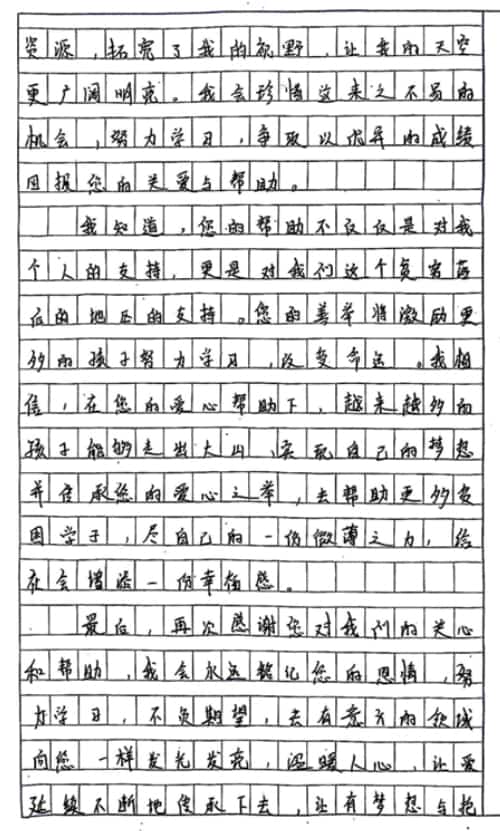 资源，拓宽了我的视野，让我的天空
更广阔明亮。我会珍惜这来之不易的
机会，努力学习，争取以优异的成绩
回报您的关爱与帮助。
我知道，您的帮助不仅仅是对我
个人的支持，更是对我们这个贫容落
后的地区的支持。您的善举将激励更
多的孩子努力学习，改变命运。我相
信，在您的爱心帮助下，越来越多的
孩子能够走出大山，实现自己的梦想
并传承您的爱心之举，去帮助更多贫
困学子，尽自己的一份微薄之力，给
社会增添一份幸福感。
最后，再次感谢您对我们的关心
和帮助，我会永远铭记您的恩情，努
力学习，不负期望，去有意义的领域
向您一样发光发亮，温暖人心，让爱
延续不断地传承下去，让有梦想与抱